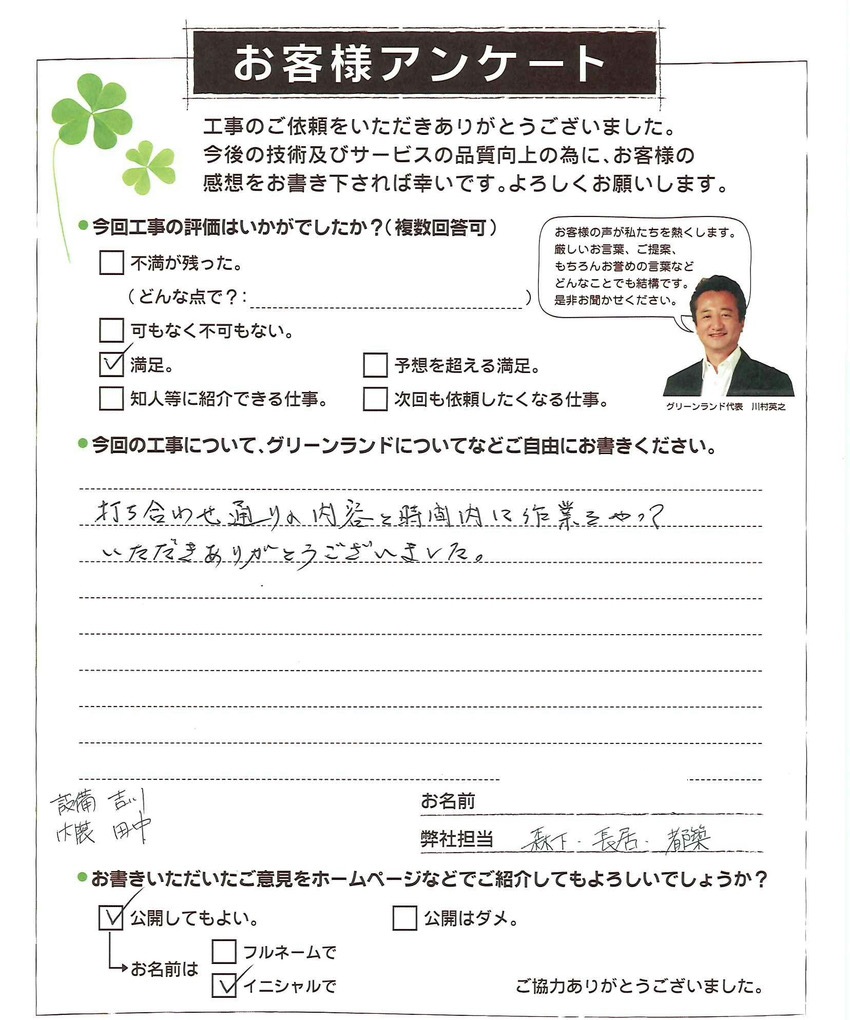 お客様アンケート
工事のご依頼をいただきありがとうございました。
今後の技術及びサービスの品質向上の為に、お客様の
感想をお書き下されば幸いです。よろしくお願いします。
●今回工事の評価はいかがでしたか？（複数回答可）
お客様の声が私たちを熱くします。
厳しいお言葉、ご提案、
もちろんお誉めの言葉など
どんなことでも結構です。
是非お聞かせください。
不満が残った。
（どんな点で？：　）
可もなく不可もない。
満足。
予想を超える満足。
知人等に紹介できる仕事。
次回も依頼したくなる仕事。
グリーンランド代表　川村英之
●今回の工事について、グリーンランドについてなどご自由にお書きください。
打ち合わせ通りの内容と時間内に作業をやって
いただきありがとうございました。
設備 吉川
内装 田中
お名前
弊社担当 森下・長居・都築
●お書きいただいたご意見をホームページなどでご紹介してもよろしいでしょうか？
公開してもよい。
公開はダメ。
お名前は
フルネームで
イニシャルで
ご協力ありがとうございました。